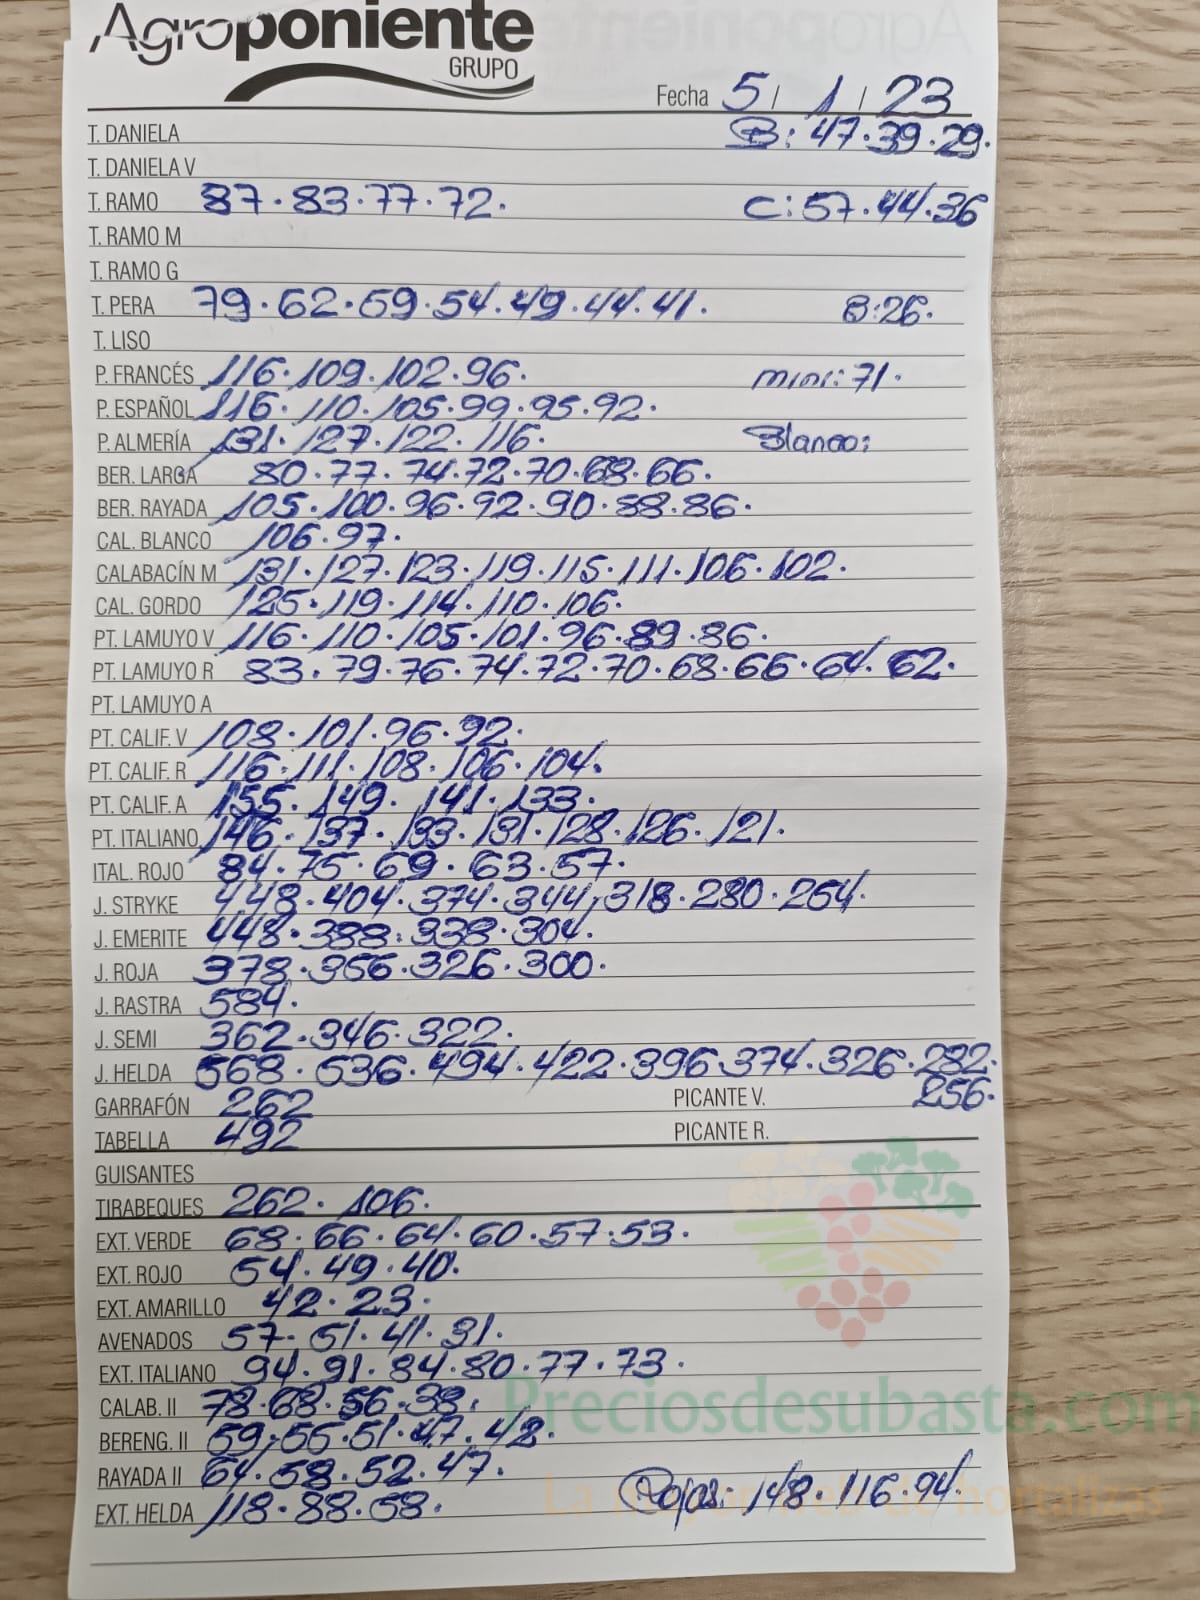 Agroponiente
GRUPO
Fecha 5 / 1 / 23
T. DANIELA B: 47.39.29.
T. DANIELA V
T. RAMO 87.83.77.72. C: 57.44.36
T. RAMO M
T. RAMO G
T. PERA 79.62.59.54.49.44.41. B:26.
T. LISO
P. FRANCÉS 116.109.102.96. mini: 71.
P. ESPAÑOL 116.110.105.99.95.92.
P. ALMERÍA 131.127.122.116. Blanco:
BER. LARGA 80.77.74.72.70.68.66.
BER. RAYADA 105.100.96.92.90.88.86.
CAL. BLANCO 106.97.
CALABACÍN M 131.127.123.119.115.111.106.102.
CAL. GORDO 125.119.114.110.106.
PT. LAMUYO V 116.110.105.101.96.89.86.
PT. LAMUYO R 83.79.76.74.72.70.68.66.64.62.
PT. LAMUYO A
PT. CALIF. V 108.101.96.92.
PT. CALIF. R 116.111.108.106.104.
PT. CALIF. A 155.149.141.133.
PT. ITALIANO 146.137.133.131.128.126.121.
ITAL. ROJO 84.75.69.63.57.
J. STRYKE 448.404.374.344.318.280.254.
J. EMERITE 448.388.338.304.
J. ROJA 378.356.326.300.
J. RASTRA 584.
J. SEMI 362.346.322.
J. HELDA 568.536.494.422.396.374.326.282.
GARRAFÓN 262 PICANTE V. 256.
TABELLA 492 PICANTE R.
GUISANTES
TIRABEQUES 262.106.
EXT. VERDE 68.66.64.60.57.53.
EXT. ROJO 54.49.40.
EXT. AMARILLO 42.23.
AVENADOS 57.51.41.31.
EXT. ITALIANO 94.91.84.80.77.73.
CALAB. II 78.68.56.38.
Preciosdesubasta.com
BERENG. II 59.55.51.47.42.
RAYADA II 64.58.52.47.
EXT. HELDA 118.88.58. Rojos: 148.116.94.